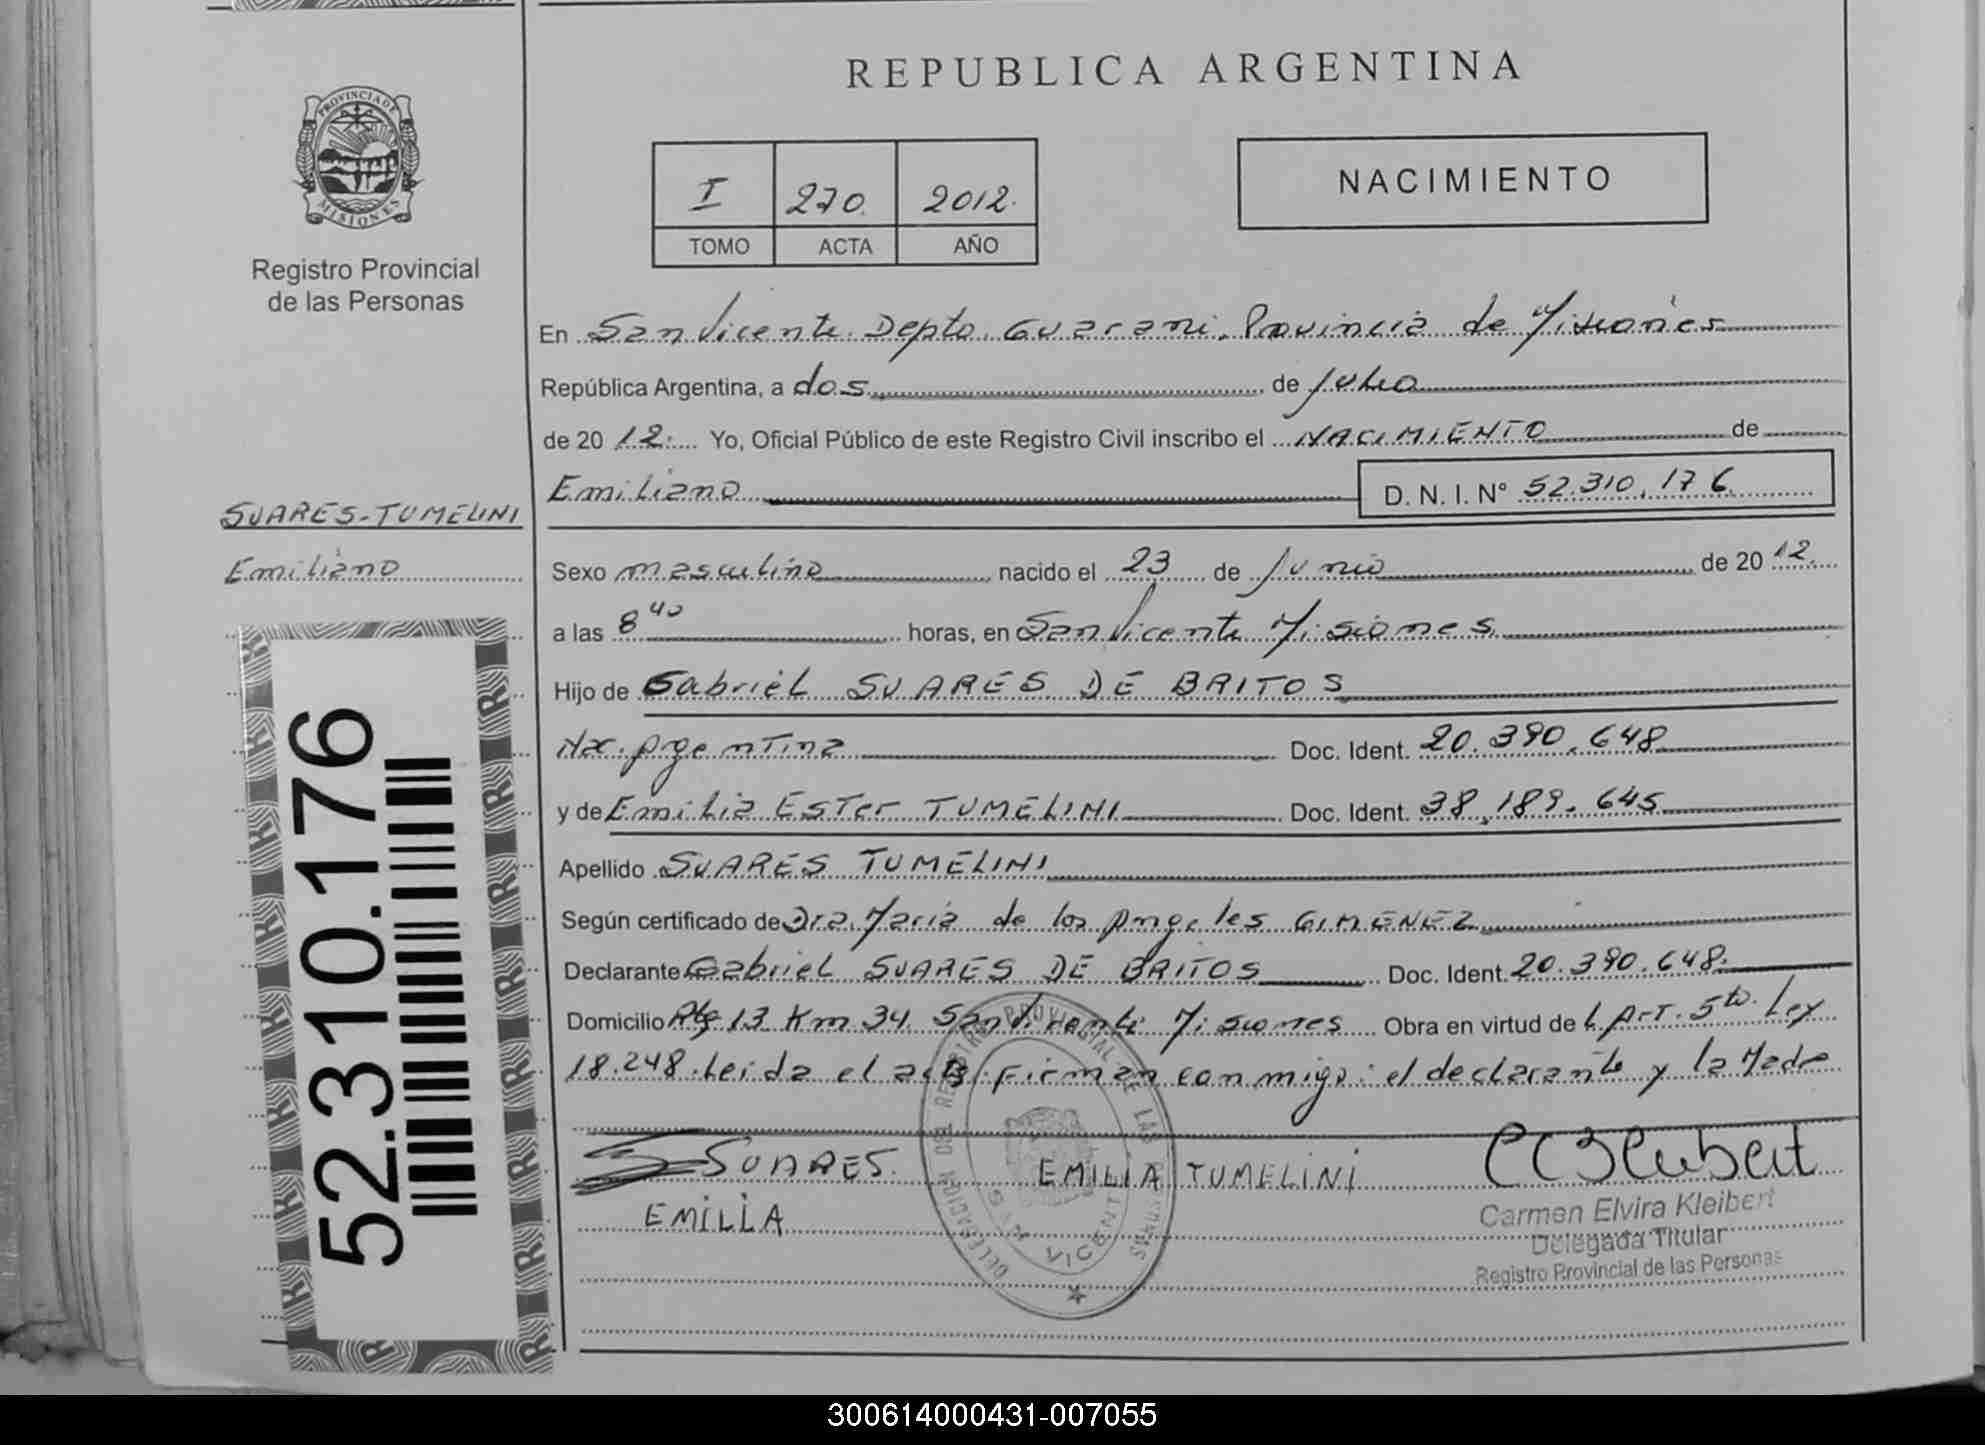 REPUBLICA ARGENTINA
PROVINCIA DE
MISIONES
Registro Provincial
de las Personas
I 270. 2012.
TOMO ACTA AÑO
NACIMIENTO
En San Vicente. Depto. Guarani. Provincia de Misiones
República Argentina, a dos de Julio
de 20 12. Yo, Oficial Público de este Registro Civil inscribo el NACIMIENTO de
Emiliano D. N. I. N° 52.310.176
SUARES-TUMELINI
Emiliano
Sexo masculino nacido el 23 de Junio de 20 12.
a las 8 40 horas, en San Vicente Misiones
Hijo de Gabriel SUARES DE BRITOS
Nac. Argentina Doc. Ident. 20.390.648
y de Emilia ESTer TUMELINI Doc. Ident. 38.189.645
Apellido SUARES TUMELINI
Según certificado de Dra. Maria de los Angeles GIMENEZ
Declarante Gabriel SUARES DE BRITOS Doc. Ident. 20.390.648.
Domicilio 13 Km 34 San Vicente Misiones Obra en virtud de ArT. 5to. Ley
18.248. Leida el acta Firman conmigo: el declarante y la Madre
SUARES EMILIA TUMELINI
EMILIA
Carmen Elvira Kleibert
Delegada Titular
Registro Provincial de las Personas
DELEGACION DEL REGISTRO PROVINCIAL DE LAS PERSONAS
SAN VICENTE
52.310.176
300614000431-007055